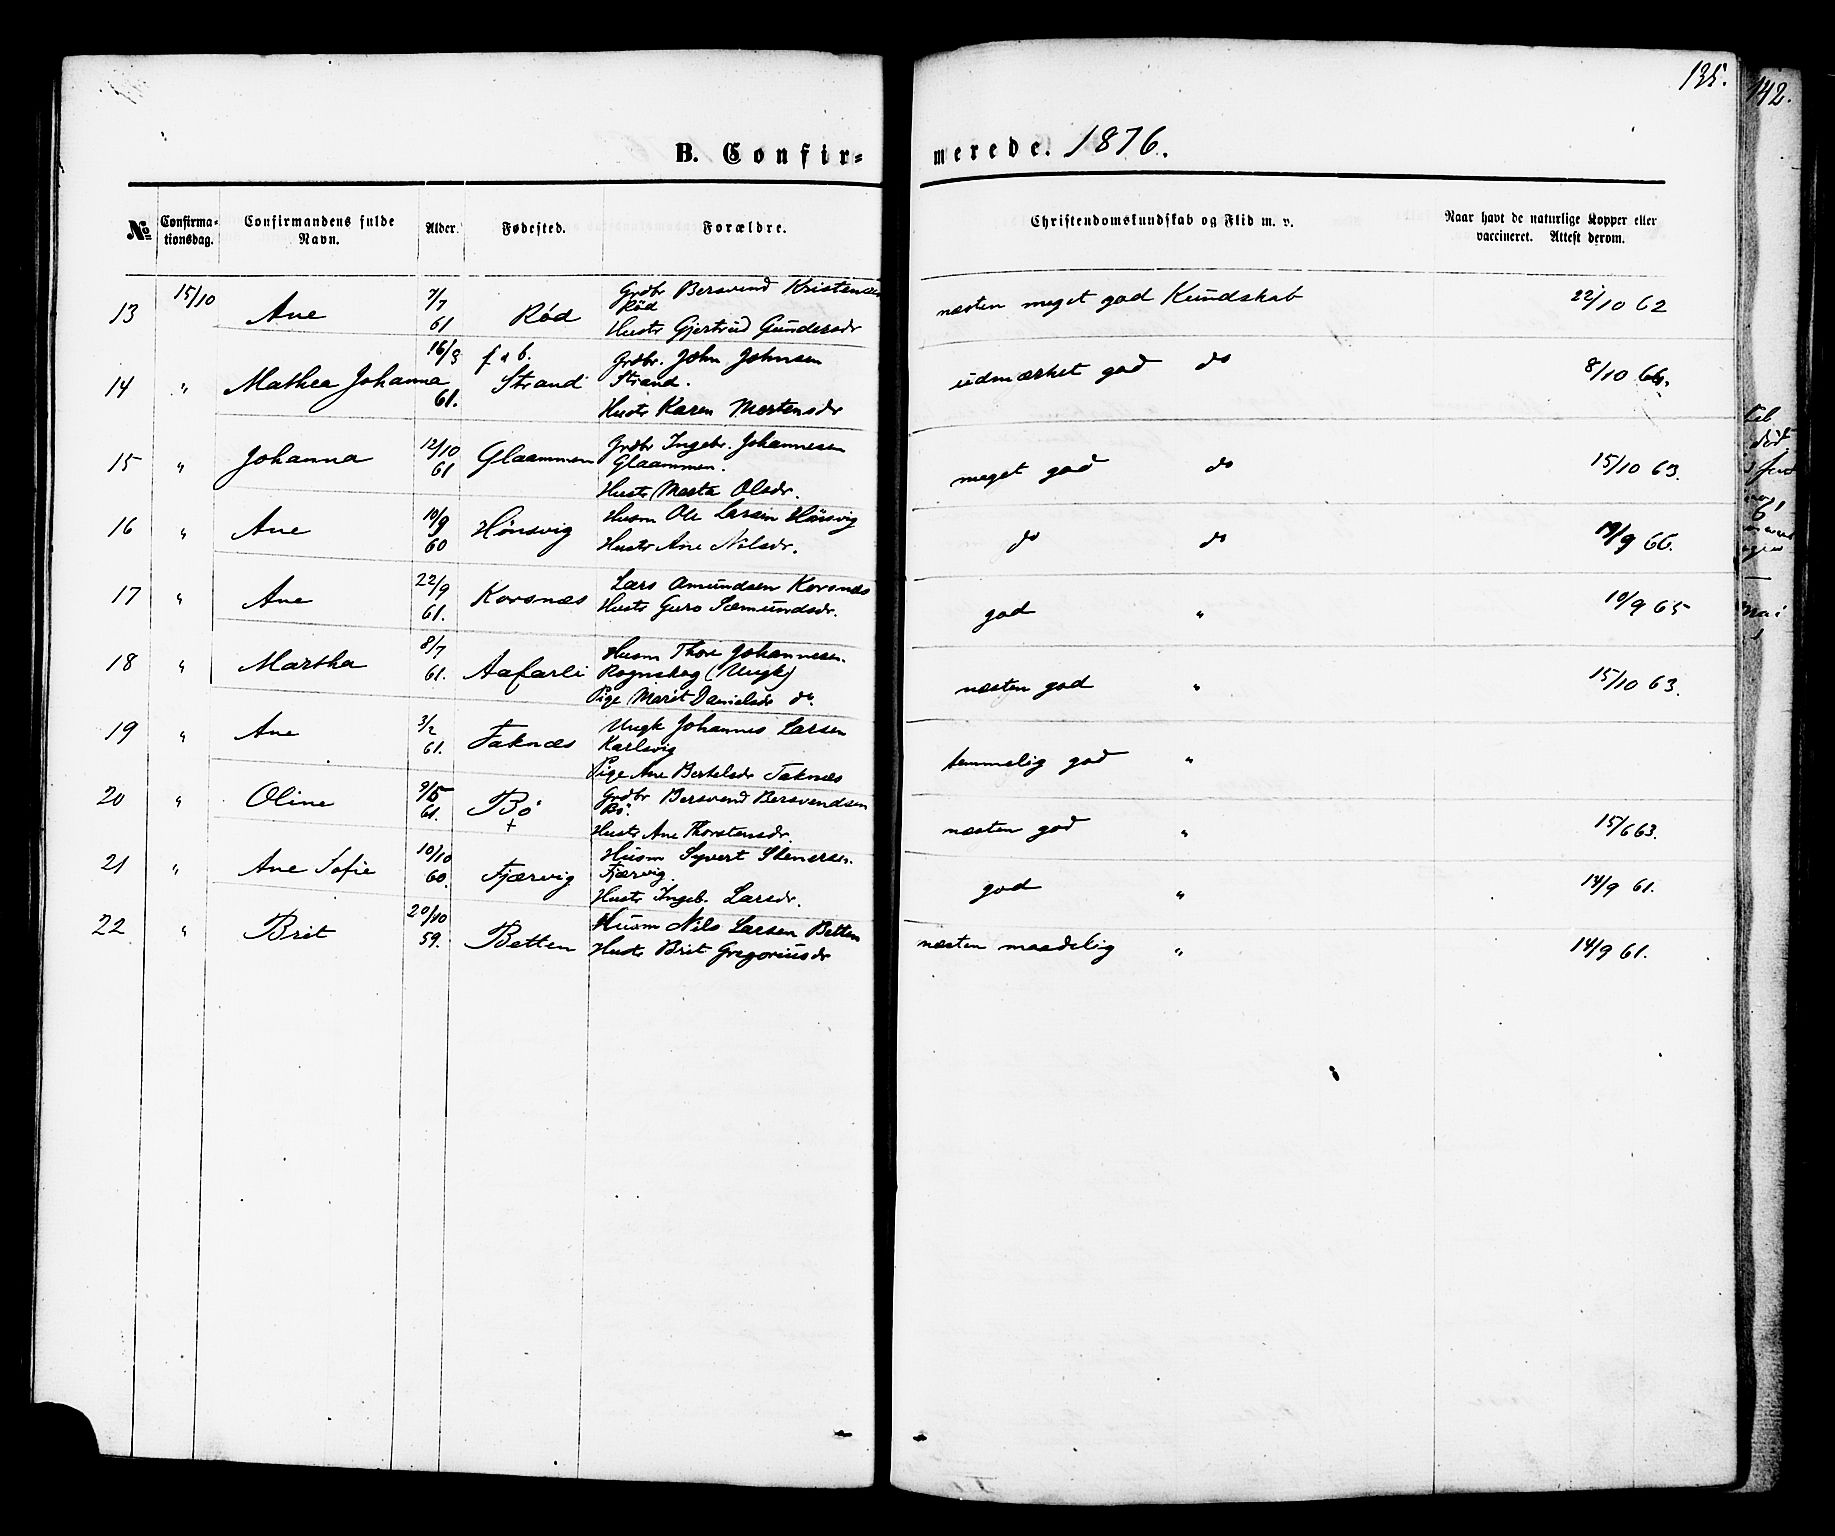 135.
142.
B. Confir- merede. 1876.
No Confirmationsdag. Confirmandens fulde Navn. Alder. Fødested. Forældre. Christendomskundskab og Flid m. v. Naar havt de naturlige Kopper eller vaccineret. Attest derom.
13 15/10 Ane 7/7 61 Rød Grdbr Bersvend Kristensen Rød Hustr Gjertrud Gundersdr næsten meget god Kundskab 22/10 62
14 " Mathea Johanna 16/3 61. f a b. Strand Grdbr. John Johnsen Strand. Hustr Karen Mortensdr udmærket god do 8/10 66.
15 " Johanna 12/10 61 Glaammen Grdbr Ingebr. Johannesen Glaammen. Hustr Marta Olsdr. meget god do 15/10 63.
16 " Ane 10/9 60 Hønsvig Husm Ole Larsen Hønsvig Hustr Ane Nilsdr. do do 19/9 66.
17 " Ane 22/9 61. Korsnæs Lars Amundsen Korsnæs Hustr Guro Sæmundsdr. god " 10/9 65
18 " Martha 8/7 61. Aafarli Husm Thore Johannesen. Rognskog (Ungk) Pige Marit Danielsdr do. næsten god " 15/10 63.
19 " Ane 3/2 61. Taknæs Ungk Johannes Larsen Karlsvig Pige Ane Bertelsdr Taknæs temmelig god "
20 " Oline 9/5 61. Bö + Grdbr Bersvend Bersvendsen Bö. Hustr Ane Thorstensdr. næsten god " 15/6 63.
21 " Ane Sofie 10/10 60. Fjærvig Husm Syvert Stenersen. Fjærvig. Hustr Ingeb. Larsdr. god " 14/9 61.
22 " Brit 20/10 59. Betten Husm Nils Larsen Betten Hustr Brit Gregoriusdr næsten maadelig " 14/9 61.